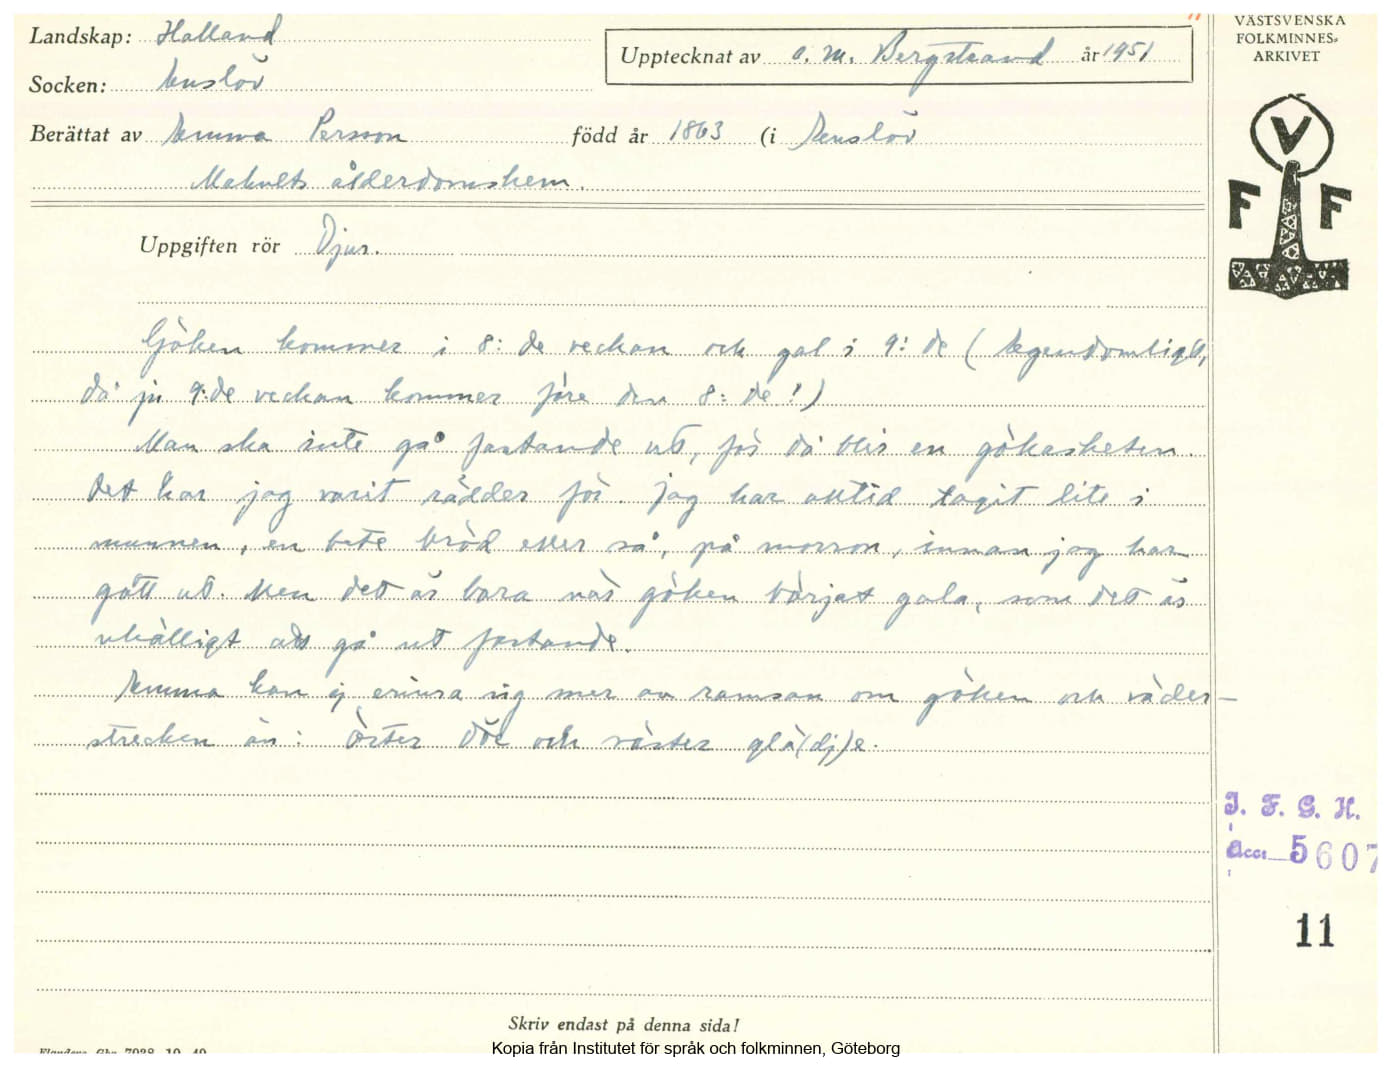 Landskap: Halland
Upptecknat av C. M. Bergstrand år 1951
VÄSTSVENSKA
FOLKMINNES-
ARKIVET
Socken: Enslöv
Berättat av Emma Persson född år 1863 (i Enslöv
Mahults ålderdomshem.
V
F F
Uppgiften rör Djur.
Göken kommer i 8:de veckan och gal i 9:de (Egendomligt,
då ju 9:de veckan kommer före den 8:de!)
Man ska inte gå fastande ut, för då blir en gökasketen.
Det har jag varit rädder för. Jag har alltid tagit lite i
munnen, en bete bröd eller så, på morron, innan jag har
gått ut. Men det är bara när göken börjat gala, som det är
uhälligt att gå ut fastande.
Emma kan ej erinra sig mer av ramsan om göken och väder-
strecken än: Öster döe och väster glä(dj)e.
I. F. G. H.
Acc: 5607
11
Skriv endast på denna sida!
Kopia från Institutet för språk och folkminnen, Göteborg